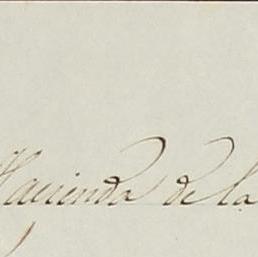 Hacienda de la